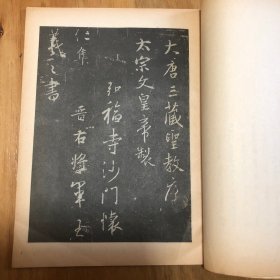 大唐三藏聖教序
太宗文皇帝製
弘福寺沙門懷
仁集
晉右將軍王
羲之書